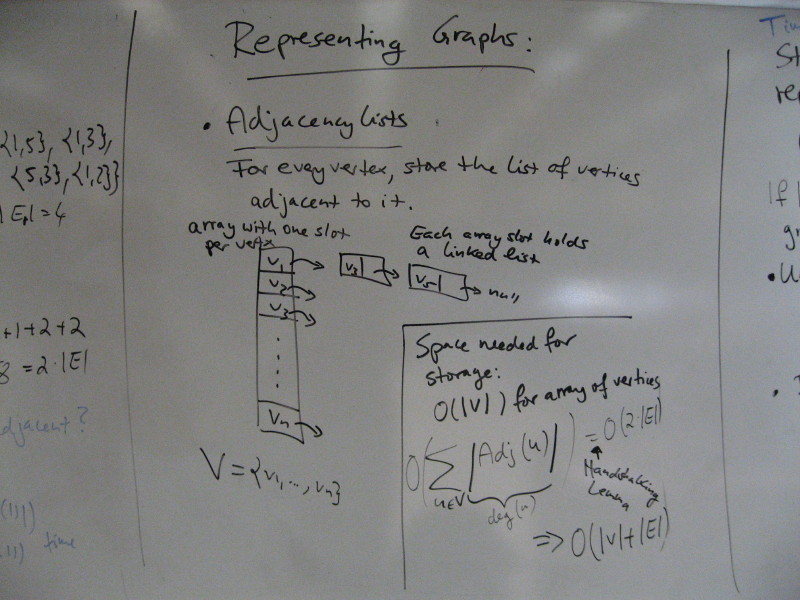 {1,5}, {1,3},
{5,3}, {1,2}}
|E| = 4
+1+2+2
8 = 2·|E|
djacent?
time
Representing Graphs:
• Adjacency lists
For every vertex, store the list of vertices
adjacent to it.
array with one slot
per vertex
Each array slot holds
a linked list
v₁
v₂
v₃
vₙ
v₅
null
V = {v₁, ..., vₙ}
Space needed for
storage:
O(|V|) for array of vertices
O(∑ |Adj(u)|) = O(2·|E|)
u∈V
deg(u)
Handshaking
Lemma
=> O(|V|+|E|)
If